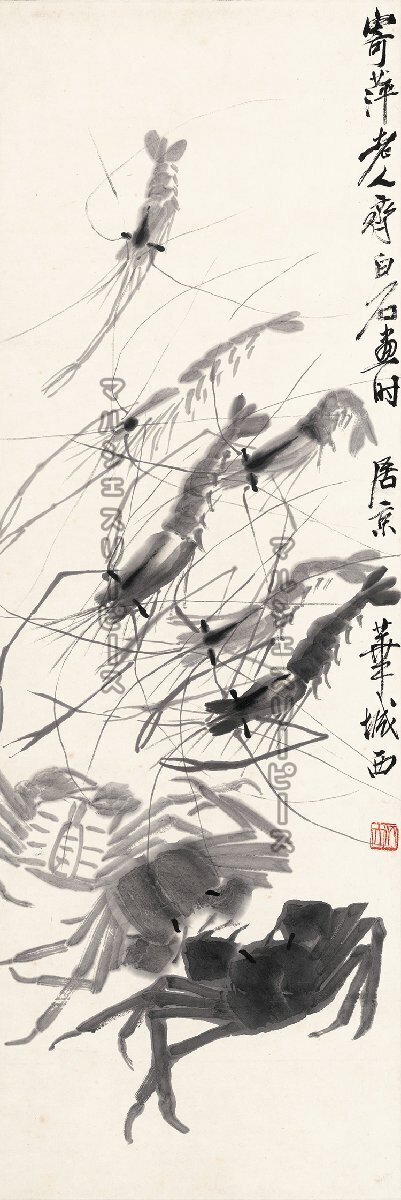 寄萍老人齊白石畫时居京華城西
マルシェスリーピース
マルシェスリーピース